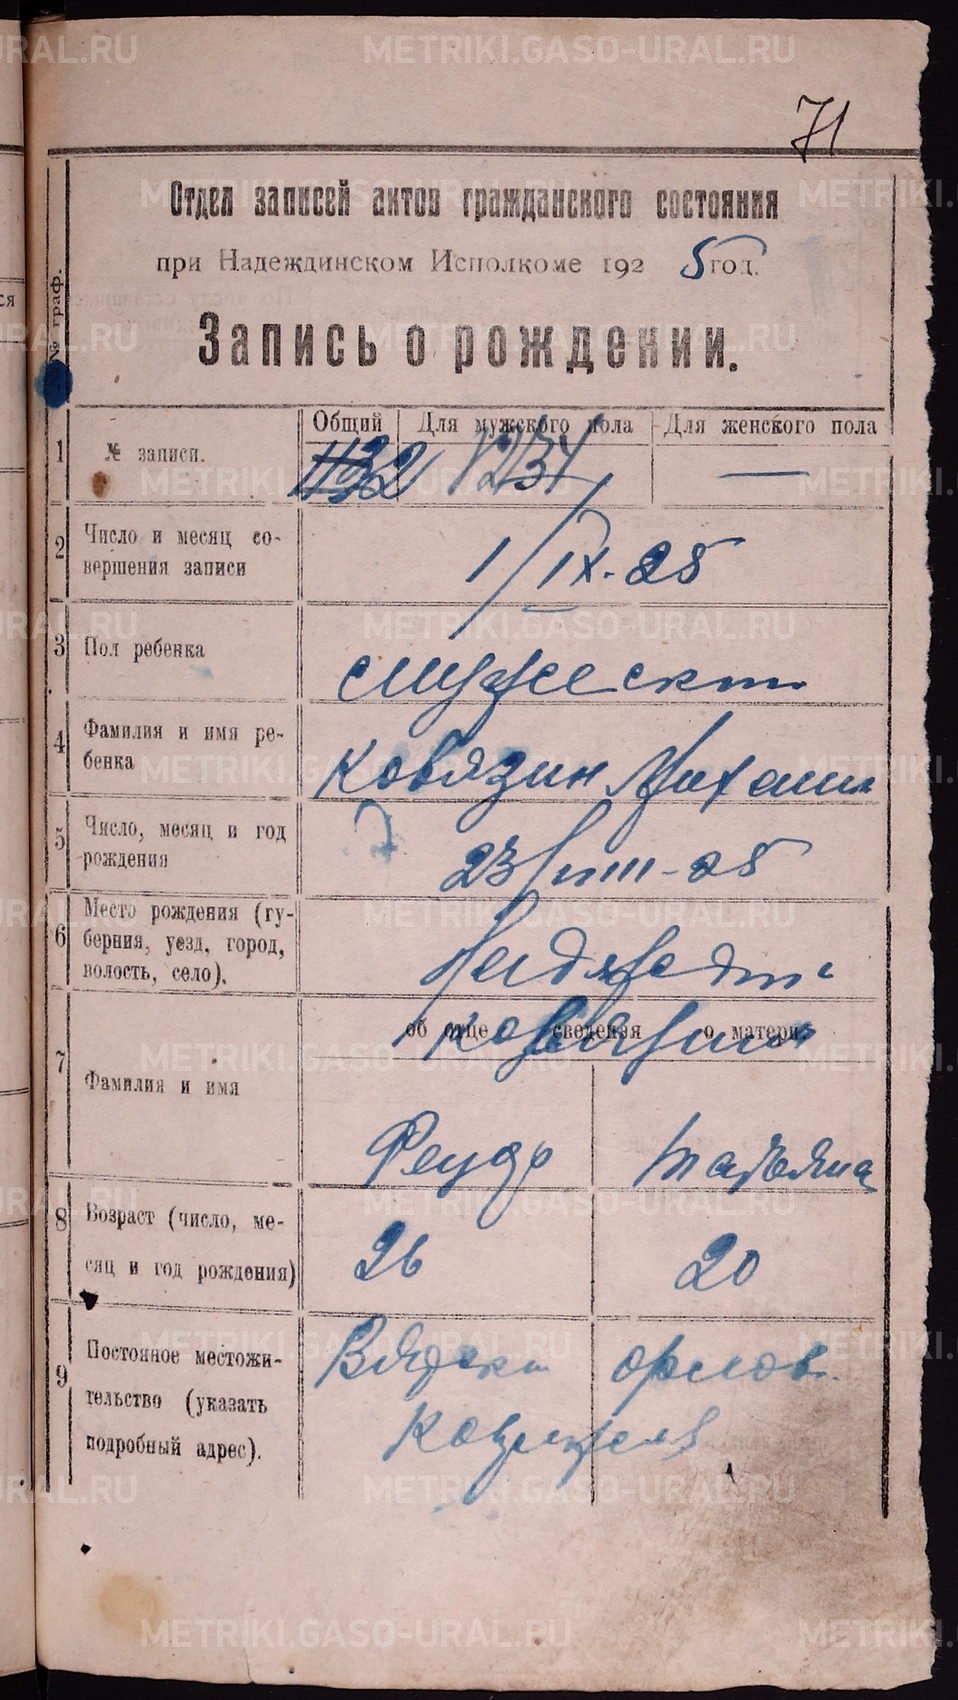 71
Отдел записей актов гражданского состояния
при Надеждинском Исполкоме 192 5 год.
Запись о рождении.
№ граф.
Общий Для мужского пола Для женского пола
1 № записи. —
2 Число и месяц со-
вершения записи
1/IX-25
3 Пол ребенка
мужеск
4 Фамилия и имя ре-
бенка
Ковязин Михаил
5 Число, месяц и год
рождения
23/VIII-25
6 Место рождения (гу-
берния, уезд, город,
волость, село).
об отце сведения о матери
Ковязин
7 Фамилия и имя
Татьяна
8 Возраст (число, ме-
сяц и год рождения)
26 20
9 Постоянное местожи-
тельство (указать
подробный адрес).
Вятск орлов.
METRIKI.GASO-URAL.RU